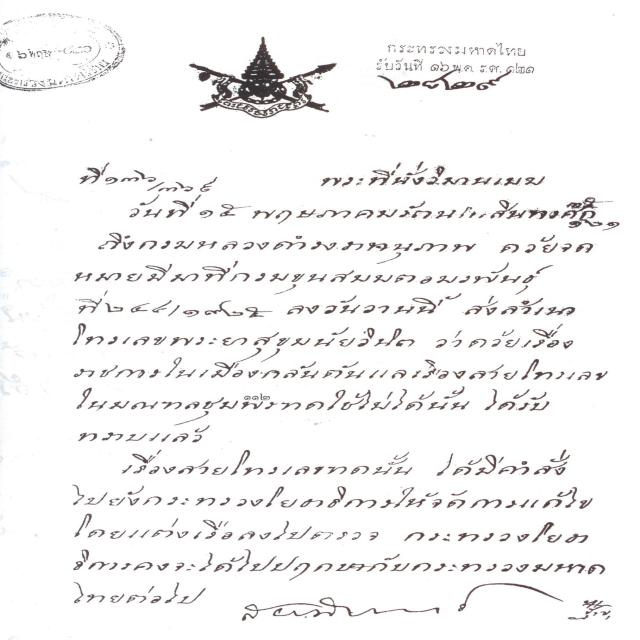 กระทรวงมหาดไทย
รับวันที่ ๑๖ พ.ค. ร.ศ. ๑๒๑
๒๘๒๙
ที่ ๑๓๖/๓๖๕ พระที่นั่งวิมานเมฆ
วันที่ ๑๕ พฤษภาคม รัตนโกสินทรศก ๑๒๑
ถึง กรมหลวงดำรงราชานุภาพ ด้วยจด
หมายมีมาที่กรมขุนสมมตอมรพันธุ์
ที่ ๒๔๔/๑๙๒๕ ลงวันวานนี้ ส่งสำเนา
โทรเลขพระยาสุขุมนัยวินิต ว่าด้วยเรื่อง
ราชการในเมืองกลันตันแลเรื่องสายโทรเลข
ในมณฑลชุมพรขาดใช้ไม่ได้นั้น ได้รับ
ทราบแล้ว
เรื่องสายโทรเลขขาดนั้น ได้มีคำสั่ง
ไปยังกระทรวงโยธาธิการให้จัดการแก้ไข
โดยแต่งเรือลงไปตรวจ กระทรวงโยธา
ธิการคงจะได้ไปปฤกษากับกระทรวงมหาด
ไทยต่อไป